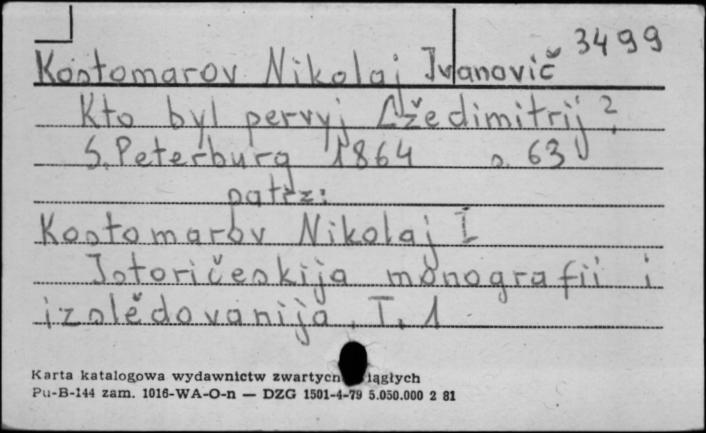 3499
Kostomarov Nikolaj Ivanovič
Kto byl pervyj Lžedimitrij?
S. Peterburg 1864 s. 63
patrz:
Kostomarov Nikolaj I
Istoričeskija monografii i
izslědovanija. T. 1
Karta katalogowa wydawnictw zwartych ciągłych
Pu-B-144 zam. 1016-WA-O-n — DZG 1501-4-79 5.050.000 2 81